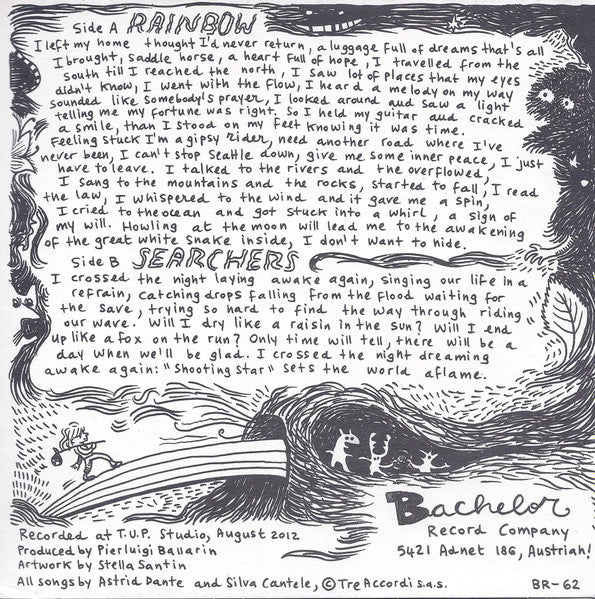 Side A RAINBOW
I left my home thought I'd never return, a luggage full of dreams that's all
I brought, saddle horse, a heart full of hope, I travelled from the
south till I reached the north, I saw lot of places that my eyes
didn't know, I went with the flow, I heard a melody on my way
sounded like somebody's prayer, I looked around and saw a light
telling me my fortune was right. So I held my guitar and cracked
a smile, than I stood on my feet knowing it was time.
Feeling stuck I'm a gipsy rider, need another road where I've
never been, I can't stop Seattle down, give me some inner peace, I just
have to leave. I talked to the rivers and the overflowed,
I sang to the mountains and the rocks, started to fall, I read
the law, I whispered to the wind and it gave me a spin,
I cried to the ocean and got stuck into a whirl, a sign of
my will. Howling at the moon will lead me to the awakening
of the great white snake inside, I don't want to hide.
Side B SEARCHERS
I crossed the night laying awake again, singing our life in a
refrain, catching drops falling from the flood waiting for
the save, trying so hard to find the way through riding
our wave. Will I dry like a raisin in the sun? Will I end
up like a fox on the run? Only time will tell, there will be a
day when we'll be glad. I crossed the night dreaming
awake again: "Shooting Star" sets the world aflame.
Bachelor
Record Company
5421 Adnet 186, Austriah!
Recorded at T.U.P. Studio, August 2012
Produced by Pierluigi Ballarin
Artwork by Stella Santin
All songs by Astrid Dante and Silva Cantele, © Tre Accordi s.a.s.
BR-62